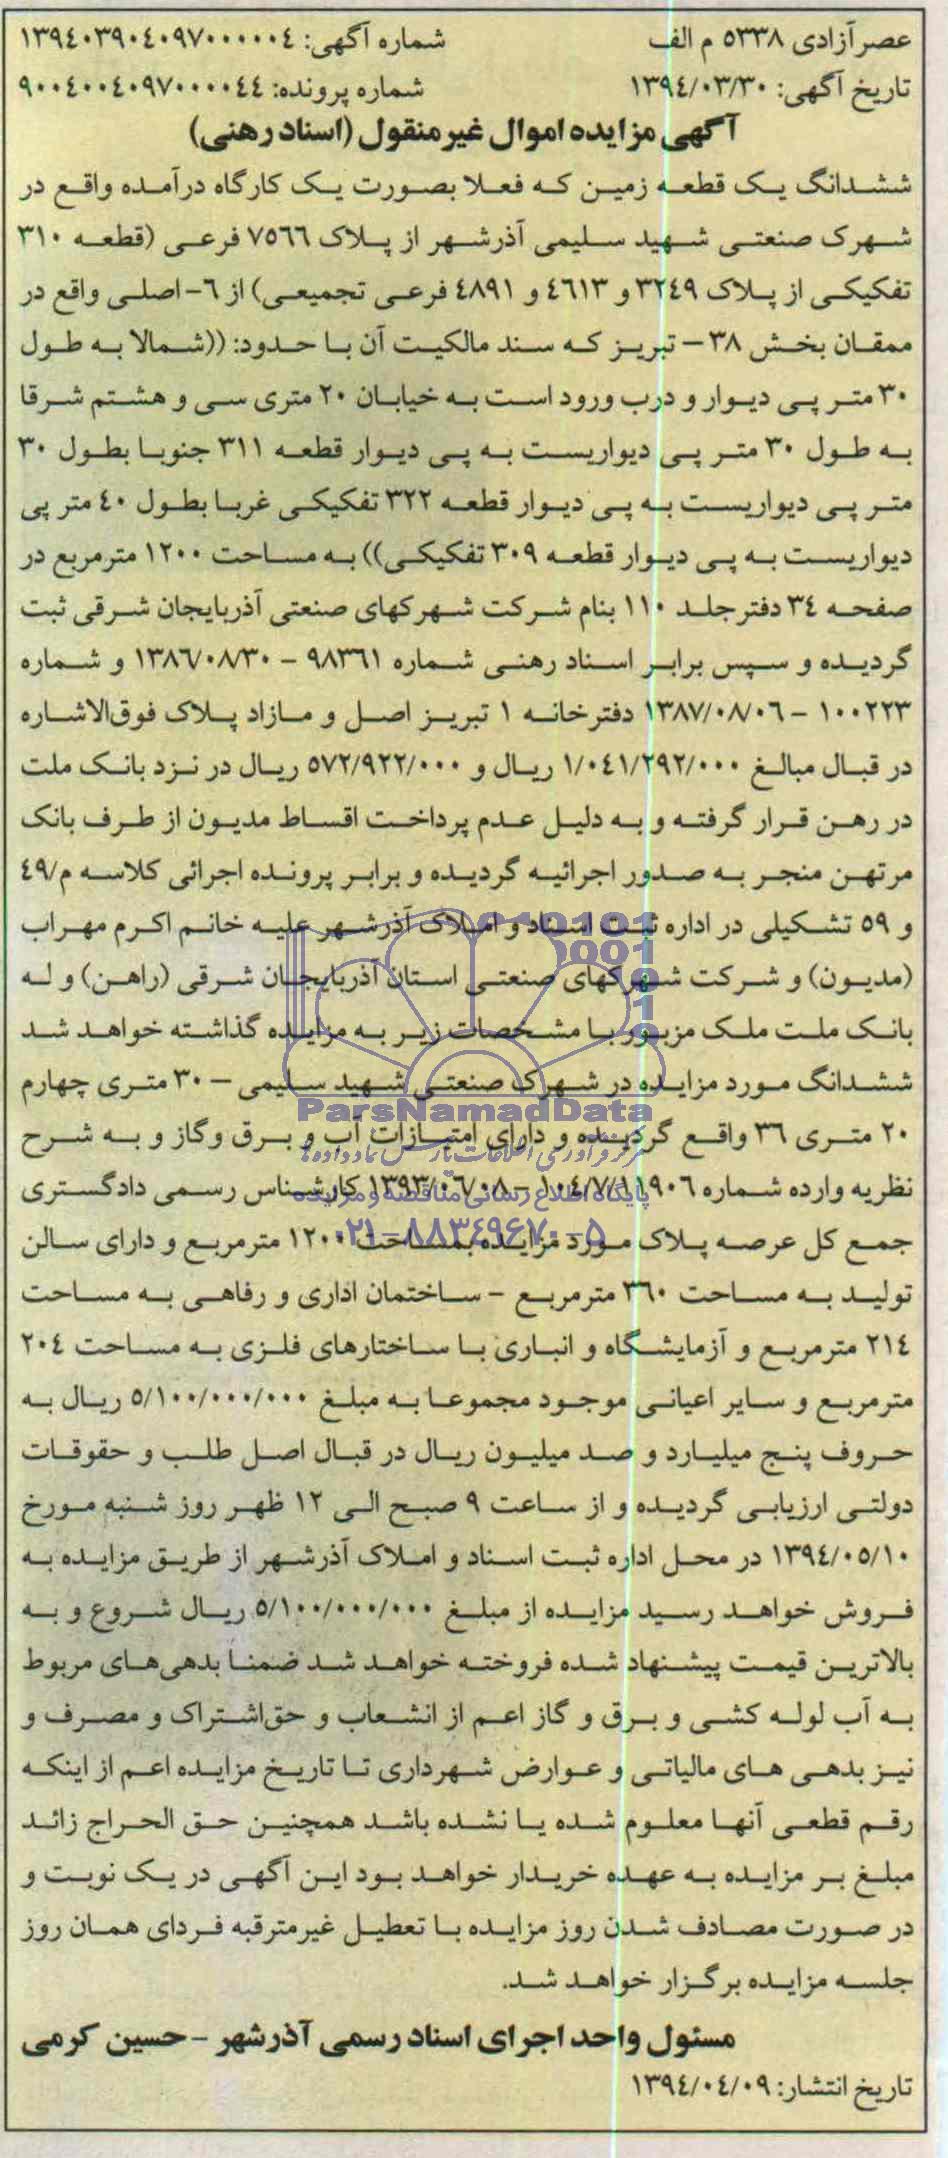 عصر آزادی ۵۳۳۸ م الف
شماره آگهی: ۱۳۹۴۰۳۹۰۴۰۹۷۰۰۰۰۰۴
تاریخ آگهی: ۱۳۹۴/۰۳/۳۰
شماره پرونده: ۹۰۰۴۰۰۴۰۹۷۰۰۰۰۴۴
آگهی مزایده اموال غیرمنقول (اسناد رهنی)
ششدانگ یک قطعه زمین که فعلا بصورت یک کارگاه درآمده واقع در
شهرک صنعتی شهید سلیمی آذرشهر از پلاک ۷۵۶۶ فرعی (قطعه ۳۱۰
تفکیکی از پلاک ۳۲۴۹ و ۴۶۱۳ و ۴۸۹۱ فرعی تجمیعی) از ۶- اصلی واقع در
ممقان بخش ۳۸ – تبریز که سند مالکیت آن با حدود: ((شمالا به طول
۳۰ متر پی دیوار و درب ورود است به خیابان ۲۰ متری سی و هشتم شرقا
به طول ۳۰ متر پی دیواریست به پی دیوار قطعه ۳۱۱ جنوبا بطول ۳۰
متر پی دیواریست به پی دیوار قطعه ۳۲۲ تفکیکی غربا بطول ۴۰ متر پی
دیواریست به پی دیوار قطعه ۳۰۹ تفکیکی)) به مساحت ۱۲۰۰ مترمربع در
صفحه ۳۴ دفترجلد ۱۱۰ بنام شرکت شهرکهای صنعتی آذربایجان شرقی ثبت
گردیده و سپس برابر اسناد رهنی شماره ۹۸۳۶۱ - ۱۳۸۶/۰۸/۳۰ و شماره
۱۰۰۲۲۳ - ۱۳۸۷/۰۸/۰۶ دفترخانه ۱ تبریز اصل و مازاد پلاک فوق‌الاشاره
در قبال مبالغ ۱/۰۴۱/۲۹۲/۰۰۰ ریال و ۵۷۲/۹۲۲/۰۰۰ ریال در نزد بانک ملت
در رهن قرار گرفته و به دلیل عدم پرداخت اقساط مدیون از طرف بانک
مرتهن منجر به صدور اجرائیه گردیده و برابر پرونده اجرائی کلاسه م/۴۹
و ۵۹ تشکیلی در اداره ثبت اسناد و املاک آذرشهر علیه خانم اکرم مهراب
(مدیون) و شرکت شهرکهای صنعتی استان آذربایجان شرقی (راهن) و له
بانک ملت ملک مزبور با مشخصات زیر به مزایده گذاشته خواهد شد
ششدانگ مورد مزایده در شهرک صنعتی شهید سلیمی – ۳۰ متری چهارم
ParsNamadData
۲۰ متری ۳۶ واقع گردیده و دارای امتیازات آب و برق وگاز و به شرح
مرکز فرآوری اطلاعات پارس نماد داده‌ها
نظریه وارده شماره ۱۰۴/۷/۱۱۹۰۶ - ۱۳۹۳/۰۶/۰۸ کارشناس رسمی دادگستری
پایگاه اطلاع رسانی مناقصه و مزایده
جمع کل عرصه پلاک مورد مزایده بمساحت ۱۲۰۰ مترمربع و دارای سالن
۰۲۱-۸۸۳۴۹۶۷۰-۵
تولید به مساحت ۳۶۰ مترمربع - ساختمان اداری و رفاهی به مساحت
۲۱۴ مترمربع و آزمایشگاه و انباری با ساختارهای فلزی به مساحت ۲۰۴
مترمربع و سایر اعیانی موجود مجموعا به مبلغ ۵/۱۰۰/۰۰۰/۰۰۰ ریال به
حروف پنج میلیارد و صد میلیون ریال در قبال اصل طلب و حقوقات
دولتی ارزیابی گردیده و از ساعت ۹ صبح الی ۱۲ ظهر روز شنبه مورخ
۱۳۹۴/۰۵/۱۰ در محل اداره ثبت اسناد و املاک آذرشهر از طریق مزایده به
فروش خواهد رسید مزایده از مبلغ ۵/۱۰۰/۰۰۰/۰۰۰ ریال شروع و به
بالاترین قیمت پیشنهاد شده فروخته خواهد شد ضمنا بدهی‌های مربوط
به آب لوله کشی و برق و گاز اعم از انشعاب و حق‌اشتراک و مصرف و
نیز بدهی های مالیاتی و عوارض شهرداری تا تاریخ مزایده اعم از اینکه
رقم قطعی آنها معلوم شده یا نشده باشد همچنین حق الحراج زائد
مبلغ بر مزایده به عهده خریدار خواهد بود این آگهی در یک نوبت و
در صورت مصادف شدن روز مزایده با تعطیل غیرمترقبه فردای همان روز
جلسه مزایده برگزار خواهد شد.
مسئول واحد اجرای اسناد رسمی آذرشهر - حسین کرمی
تاریخ انتشار: ۱۳۹۴/۰۴/۰۹